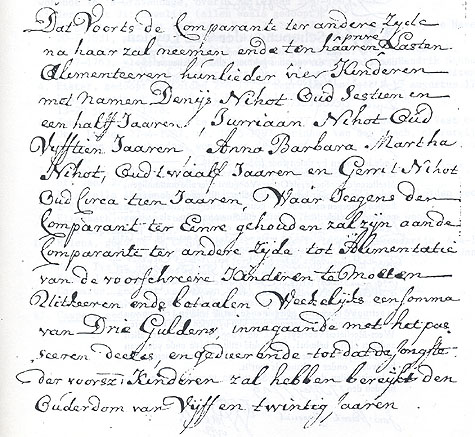 Dat Voorts de Comparante ter andere Zyde
na haar zal neemen ende ten haaren privé Kasten
Alimenteeren hunlieder vier Kinderen
met namen Denijs Nihot Oud Sestien en
een halff Jaaren, Jurriaan Nihot Oud
Vyfftien Jaaren Anna Barbara Martha
Nihot, Oud twaalf Jaaren en Gerrit Nihot
Oud Circa tien Jaaren, Waar Jeegens den
Comparant ter Eenre gehouden zal zijn aan de
Comparante ter andere Zyde tot Alimentatie
van de voorschreeve Kinderen te Moeten
Uitkeeren ende betaalen Weekelijks een somma
van Drie Guldens, innegaande met het pas-
seeren deeses, en geduerende tot dat de Jongste
der voorsz: Kinderen zal hebben bereijkt den
Ouderdom van Vijff en twintig Jaaren